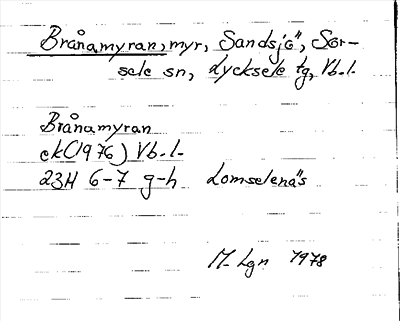 Brånamyran, myr, Sandsjö, Sor-
sele sn, Lycksele tg, Vb.l.
Brånamyran
ek(1976) Vb.l.
23H 6-7 g-h Lomselenäs
M. Lgn 1978